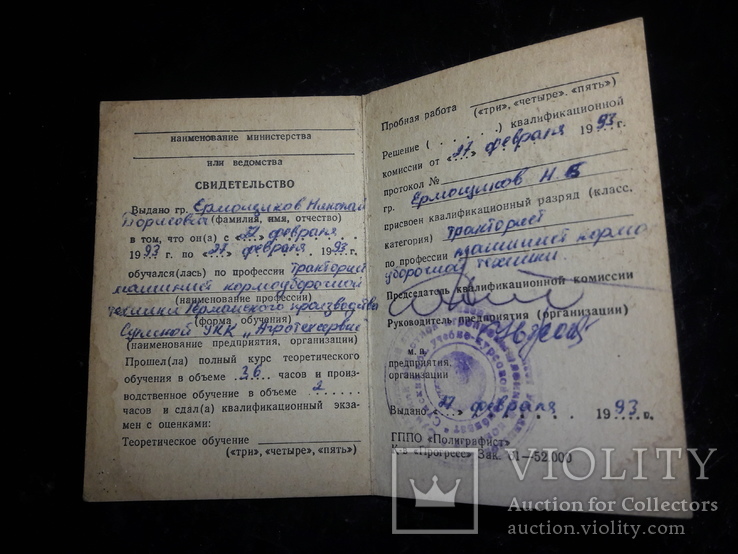 наименование министерства
или ведомства
СВИДЕТЕЛЬСТВО
Выдано гр. Ермощиков Николай
Борисович (фамилия, имя, отчество)
в том, что он(а) с «27» февраля
1993 г. по «27» февраля 1993 г.
обучался(лась) по профессии тракторист
машинист кормоуборочной
(наименование профессии)
техники Германского производства
(форма обучения)
Сумской УКК "Агротехсервис"
(наименование предприятия, организации)
Прошел(ла) полный курс теоретического
обучения в объеме 36 часов и произ-
водственное обучение в объеме 2
часов и сдал(а) квалификационный экза-
мен с оценками:
Теоретическое обучение
(«три», «четыре», «пять»)
Пробная работа
(«три», «четыре», «пять»)
Решение (. . . . . .) квалификационной
комиссии от «27» февраля 1993 г.
протокол №
гр. Ермощиков Н Б
присвоен квалификационный разряд (класс,
категория) тракторист
по профессии машинист кормо
уборочной техники.
Председатель квалификационной комиссии
Руководитель предприятия (организации)
м. п.
предприятия,
организации
Выдано «27» февраля 1993 г.
ГППО «Полиграфист»
Зак. 01—52.000
VIOLITY
Auction for Collectors
auction.violity.com